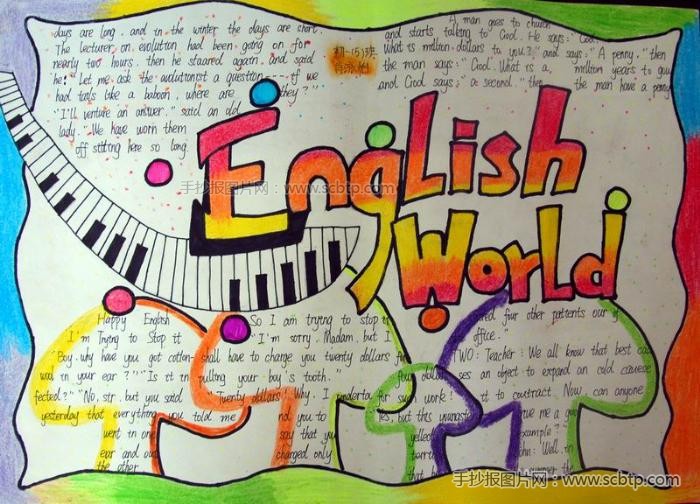 days are long, and in the winter the days are short.
The lecturer on evolution had been going on for
nearly two hours. then he staared again, and said
he: "Let me ask the evolutionist a question---- if we
had tails like a baboon, where are they?"
"I'll venture an answer." said an old
lady. "We have worn them
off sitting here so long.
初一(5)班
A man goes to church
and starts talking to God. He says: "God,
what is million dollars to you?" and says: "A penny," then
the man says: "God, What is a million years to you
and God says: "a second." then the man have a penny
手抄报图片网：www.scbtp.com
English
World
Happy English
I'm Trying to Stop it
"Boy, why have you got cotton-
wool in your ear? Is it in
fected?" "No, sir, but you said
yesterday that everything you told me
went in one
ear and out
the other
So I am trying to stop it
"I'm sorry, Madam, but I
shall have to change you twenty dollars for
pulling your boy's tooth."
"Twenty dollars! Why, I
nd you to
say that you
changed only
four dollars
for such work!
yes, but this youngster
yelled
that
ared four other patients out
office.
TWO: Teacher: We all know that best
ses an object to expand an cold
it to contract. Now, can anyone
give me a
example?
John: Well, in
summer the
手抄报图片网：www.scbtp.com